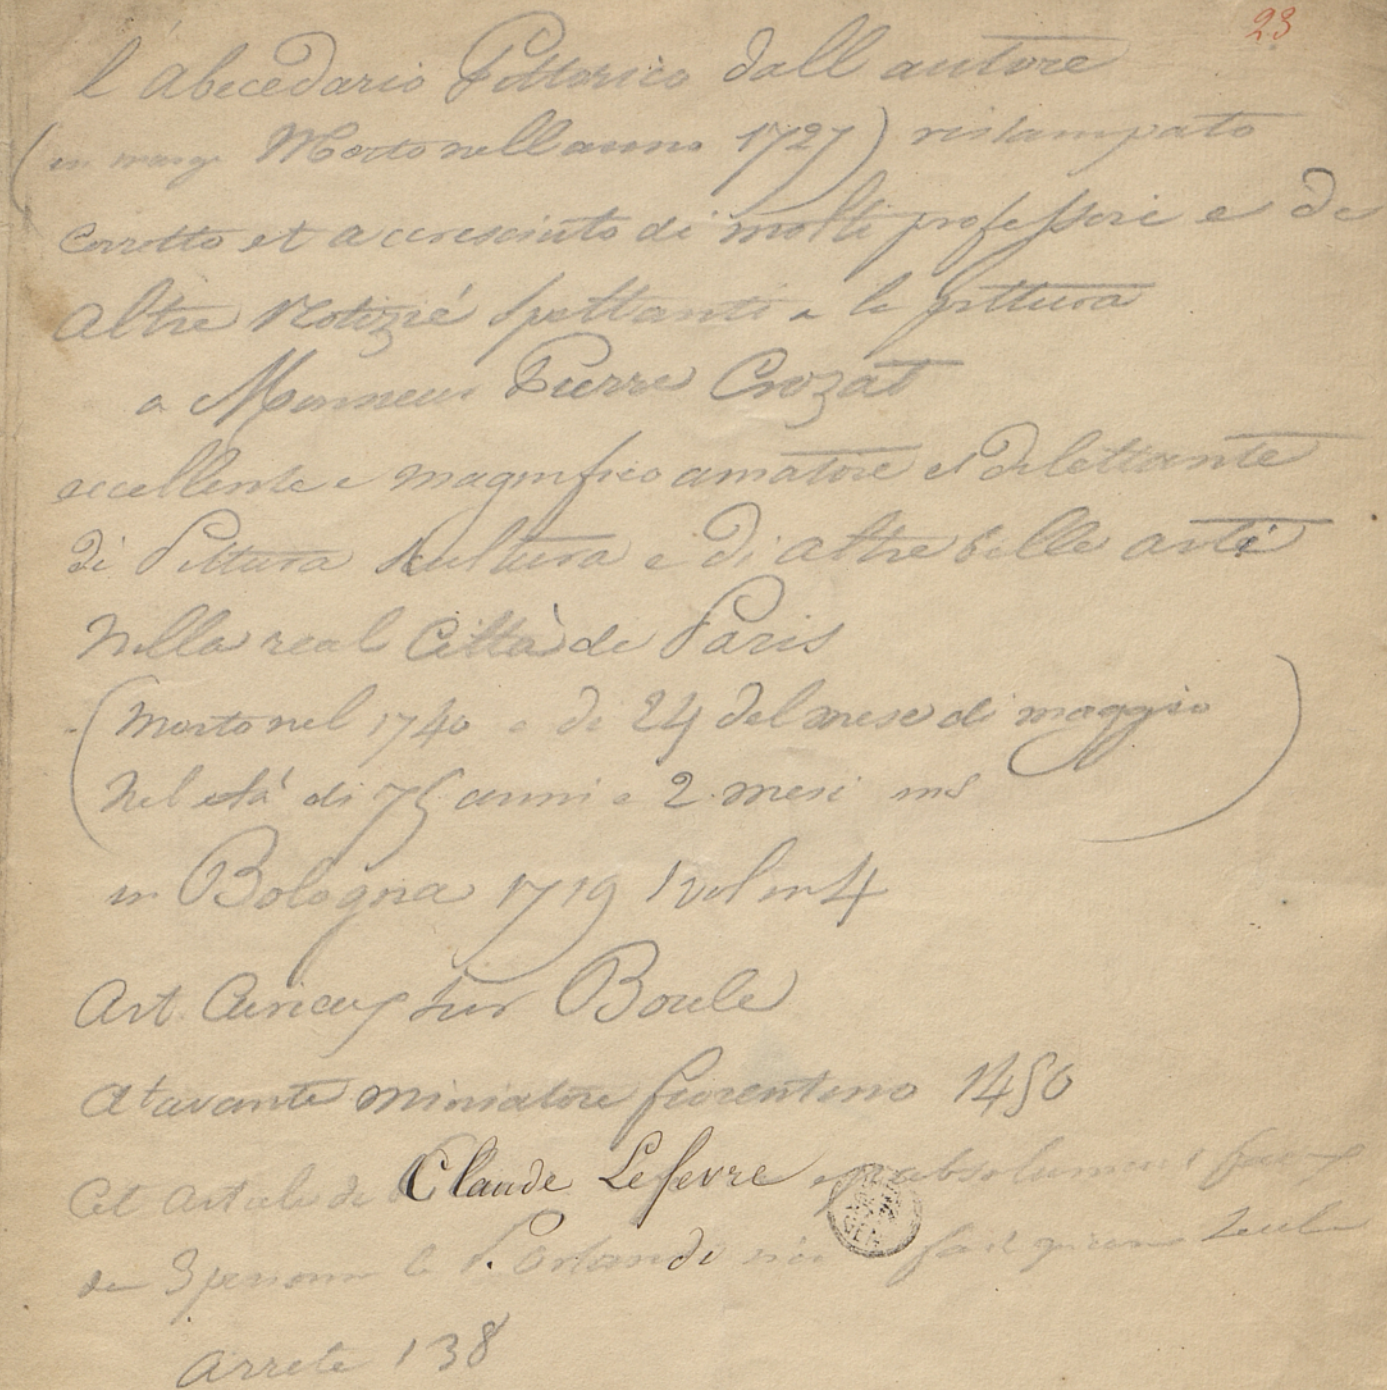 23
l Abecedario Pittorico dall autore
(en marge Morto nell anno 1727) ristampato
Corretto et accresciuto di molti professori e di
altre Notizie spettanti a la pittura
a Monsieur Pierre Crozat
eccellente e magnifico amatore et dilettante
di Pittura Scultura e di altre belle arti
Nella real Città de Paris
- (Morto nel 1740 e di 24 del mese di maggio
Nel età di 75 anni e 2 mesi ms)
in Bologna 1719 1 vol in 4
Art. Curieux sur Boule
Atavante miniatore fiorentino 1450
Cet article de Claude Lefevre est absolument faux
de 3 personnes le P. Orlandi n'en fait qu'une seule
arrete 138